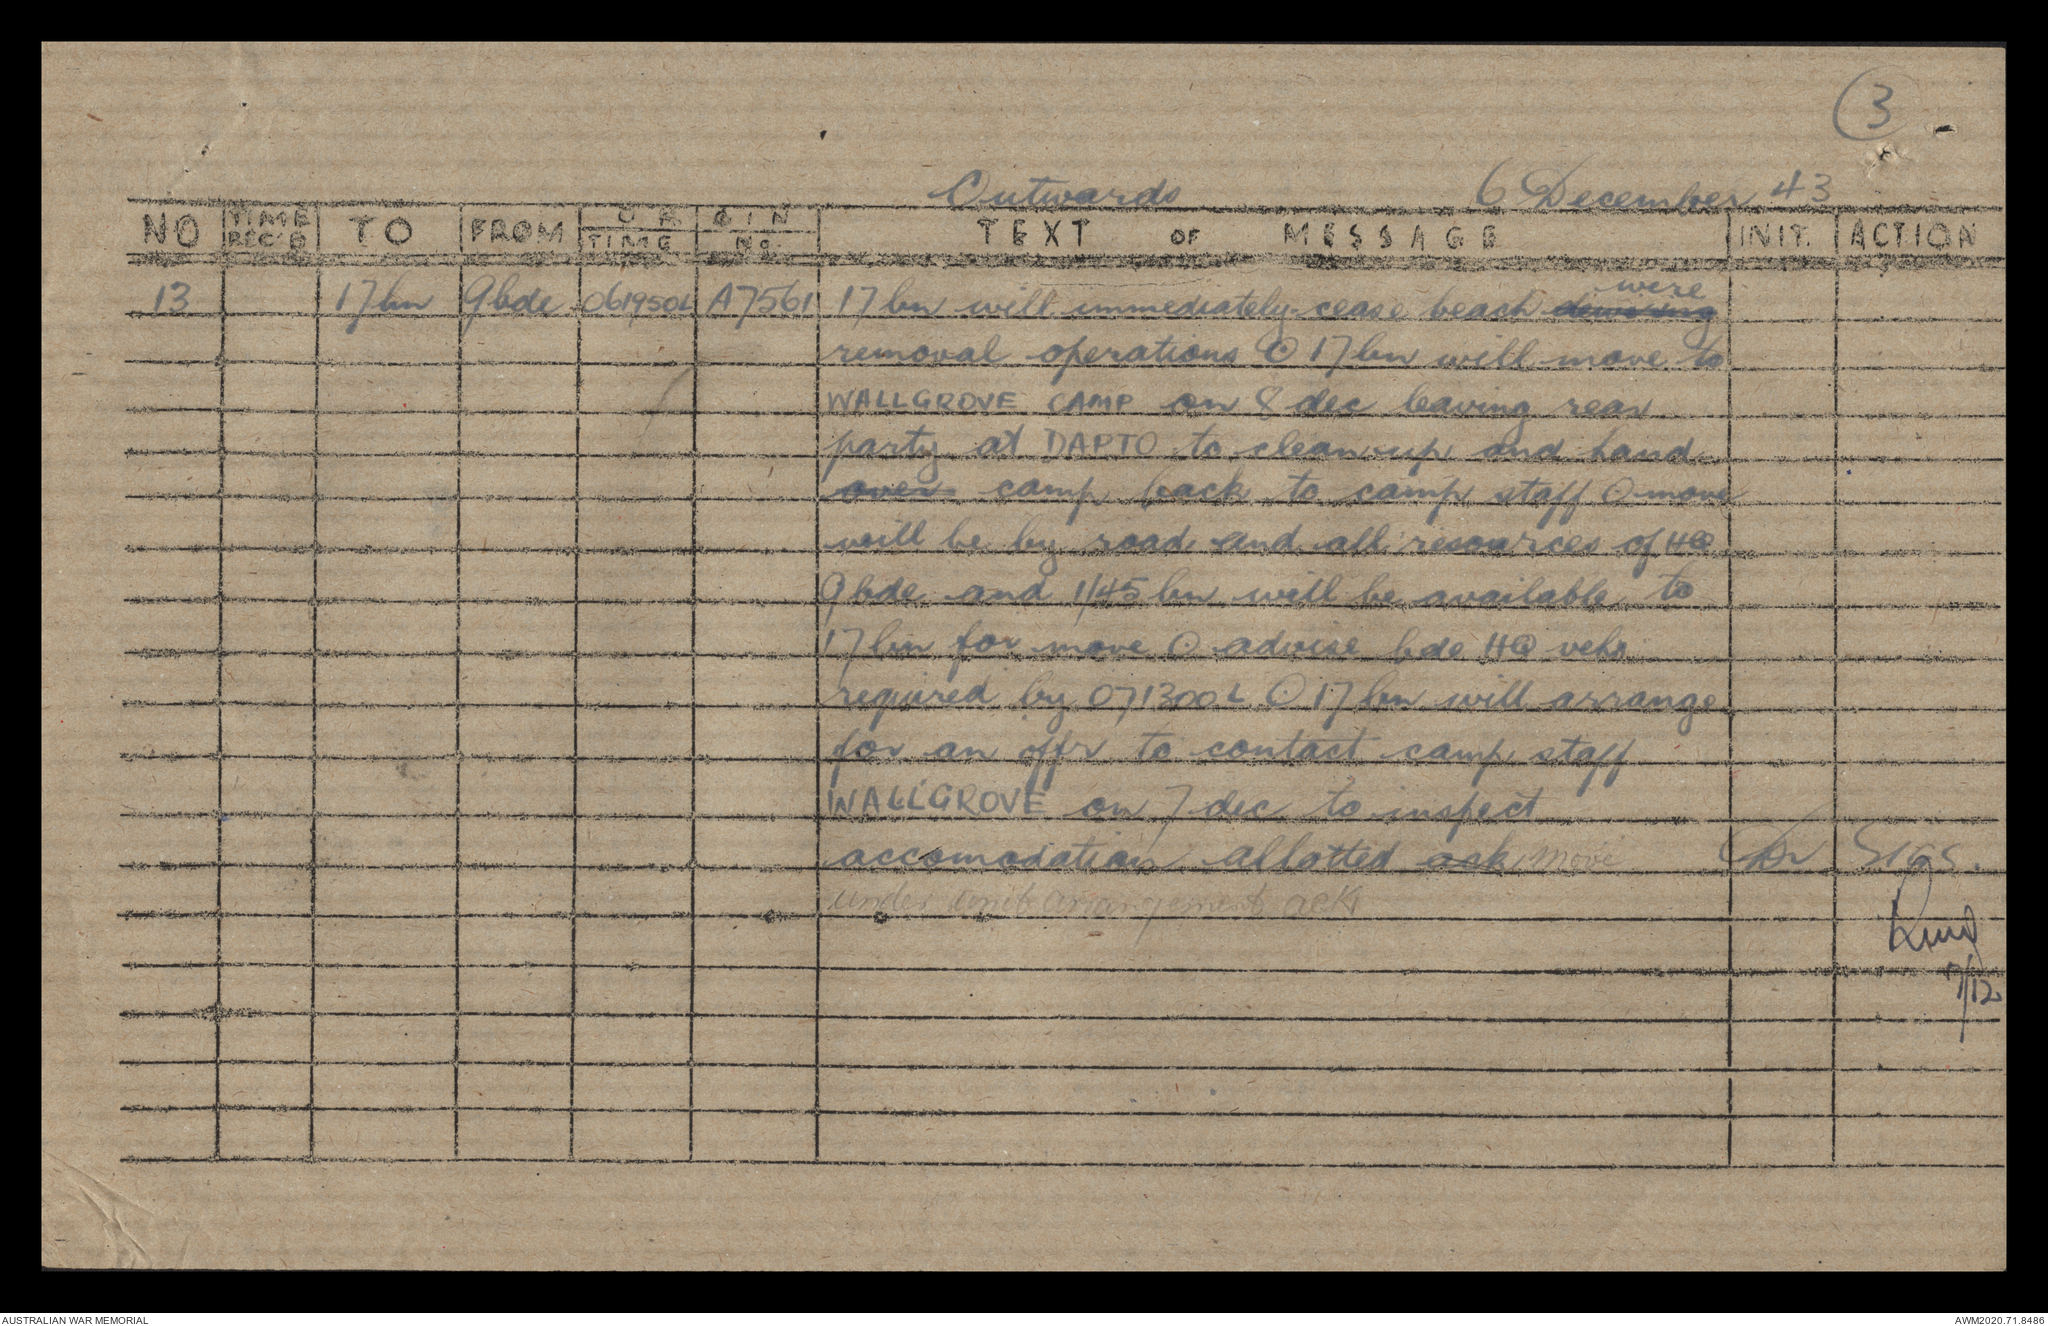 3
Outwards 6 December 43
NO TIME REC'D TO FROM ORIGIN TIME No. TEXT OF MESSAGE INIT. ACTION
were
13 17bn 9bde 061950L A7561 17bn will immediately cease beach
removal operations O 17bn will move to
WALLGROVE CAMP on 8 dec leaving rear
party at DAPTO to clean up and hand
over camp back to camp staff O move
will be by road and all resources of HQ
9bde and 1/45 bn will be available to
17bn for move O advise bde HQ vehs
required by 071300L O 17bn will arrange
for an offr to contact camp staff
WALLGROVE on 7 dec to inspect
accomodation allotted ack move SIGS.
under unit arrangements ack
7/12
AUSTRALIAN WAR MEMORIAL AWM2020.71.8486